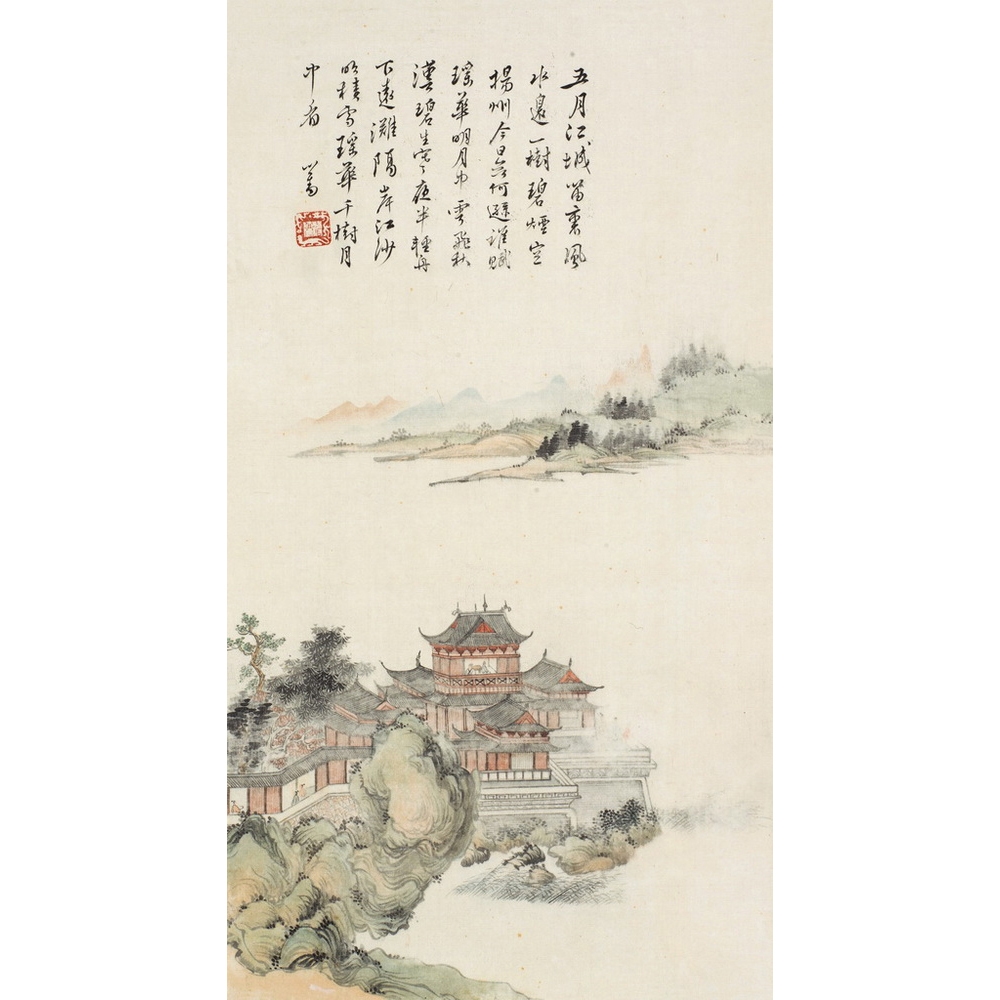 五月江城笛裏風
水邊一樹碧煙空
揚州今日無何遜誰賦
瑤華明月中雲飛秋
漢碧生寒夜半輕舟
下遠灘隔岸江沙
明積雪瑤華千樹月
中看